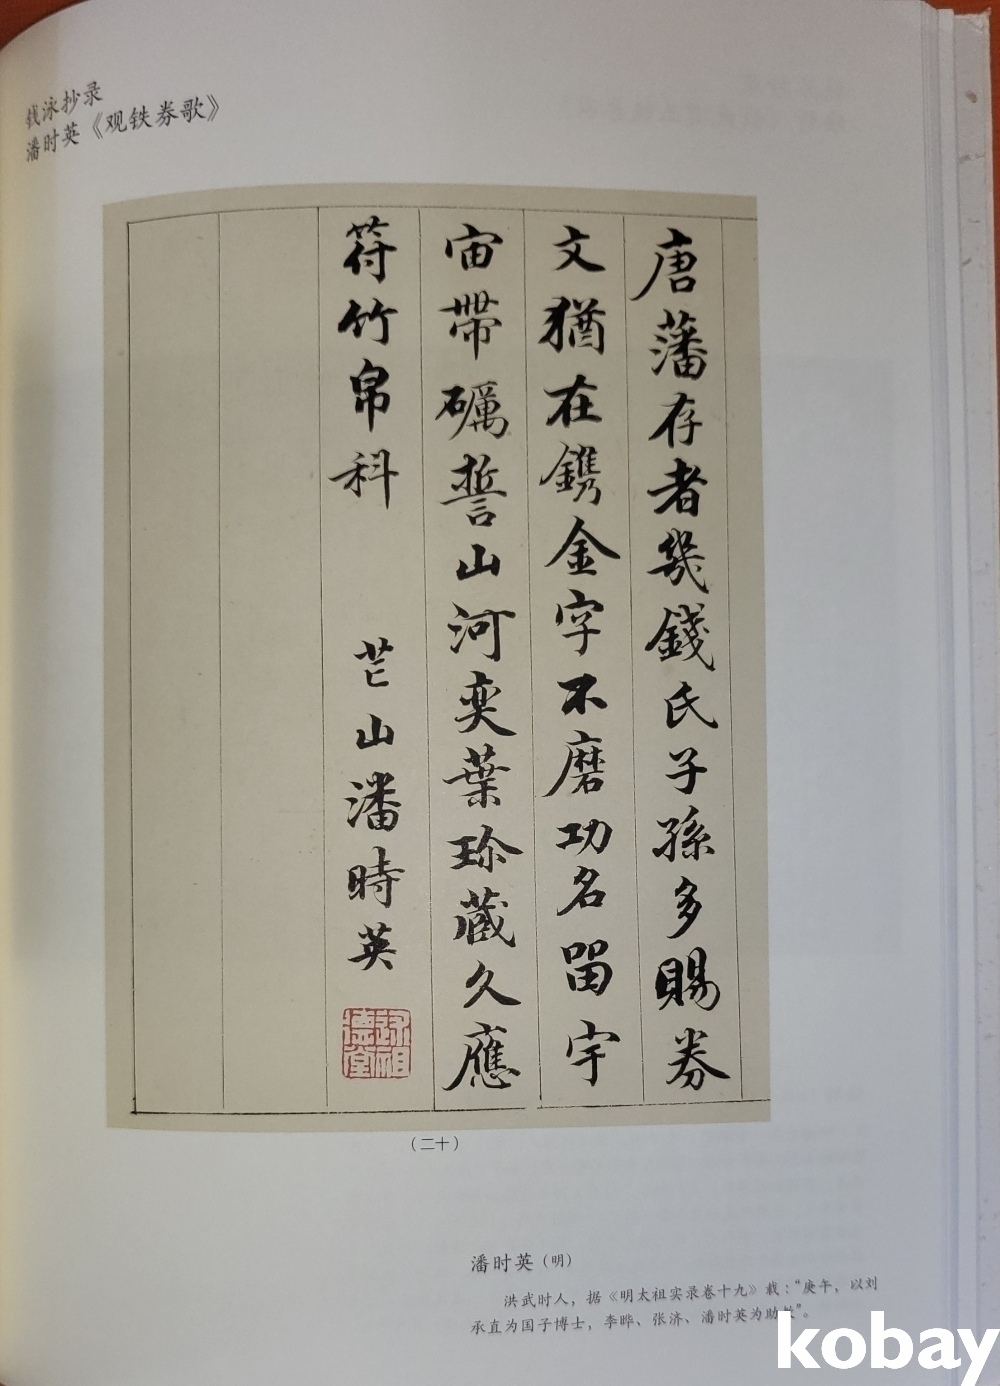 钱泳抄录
潘时英《观铁券歌》
唐藩存者幾錢氏子孫多賜券
文猶在鐫金字不磨功名留宇
宙帶礪誓山河奕葉珍藏久應
符竹帛科 芒山潘時英
泳祖德堂
（二十）
潘时英（明）
洪武时人，据《明太祖实录卷十九》载：“庚午，以刘
承直为国子博士，李晔、张济、潘时英为助教”。
kobay